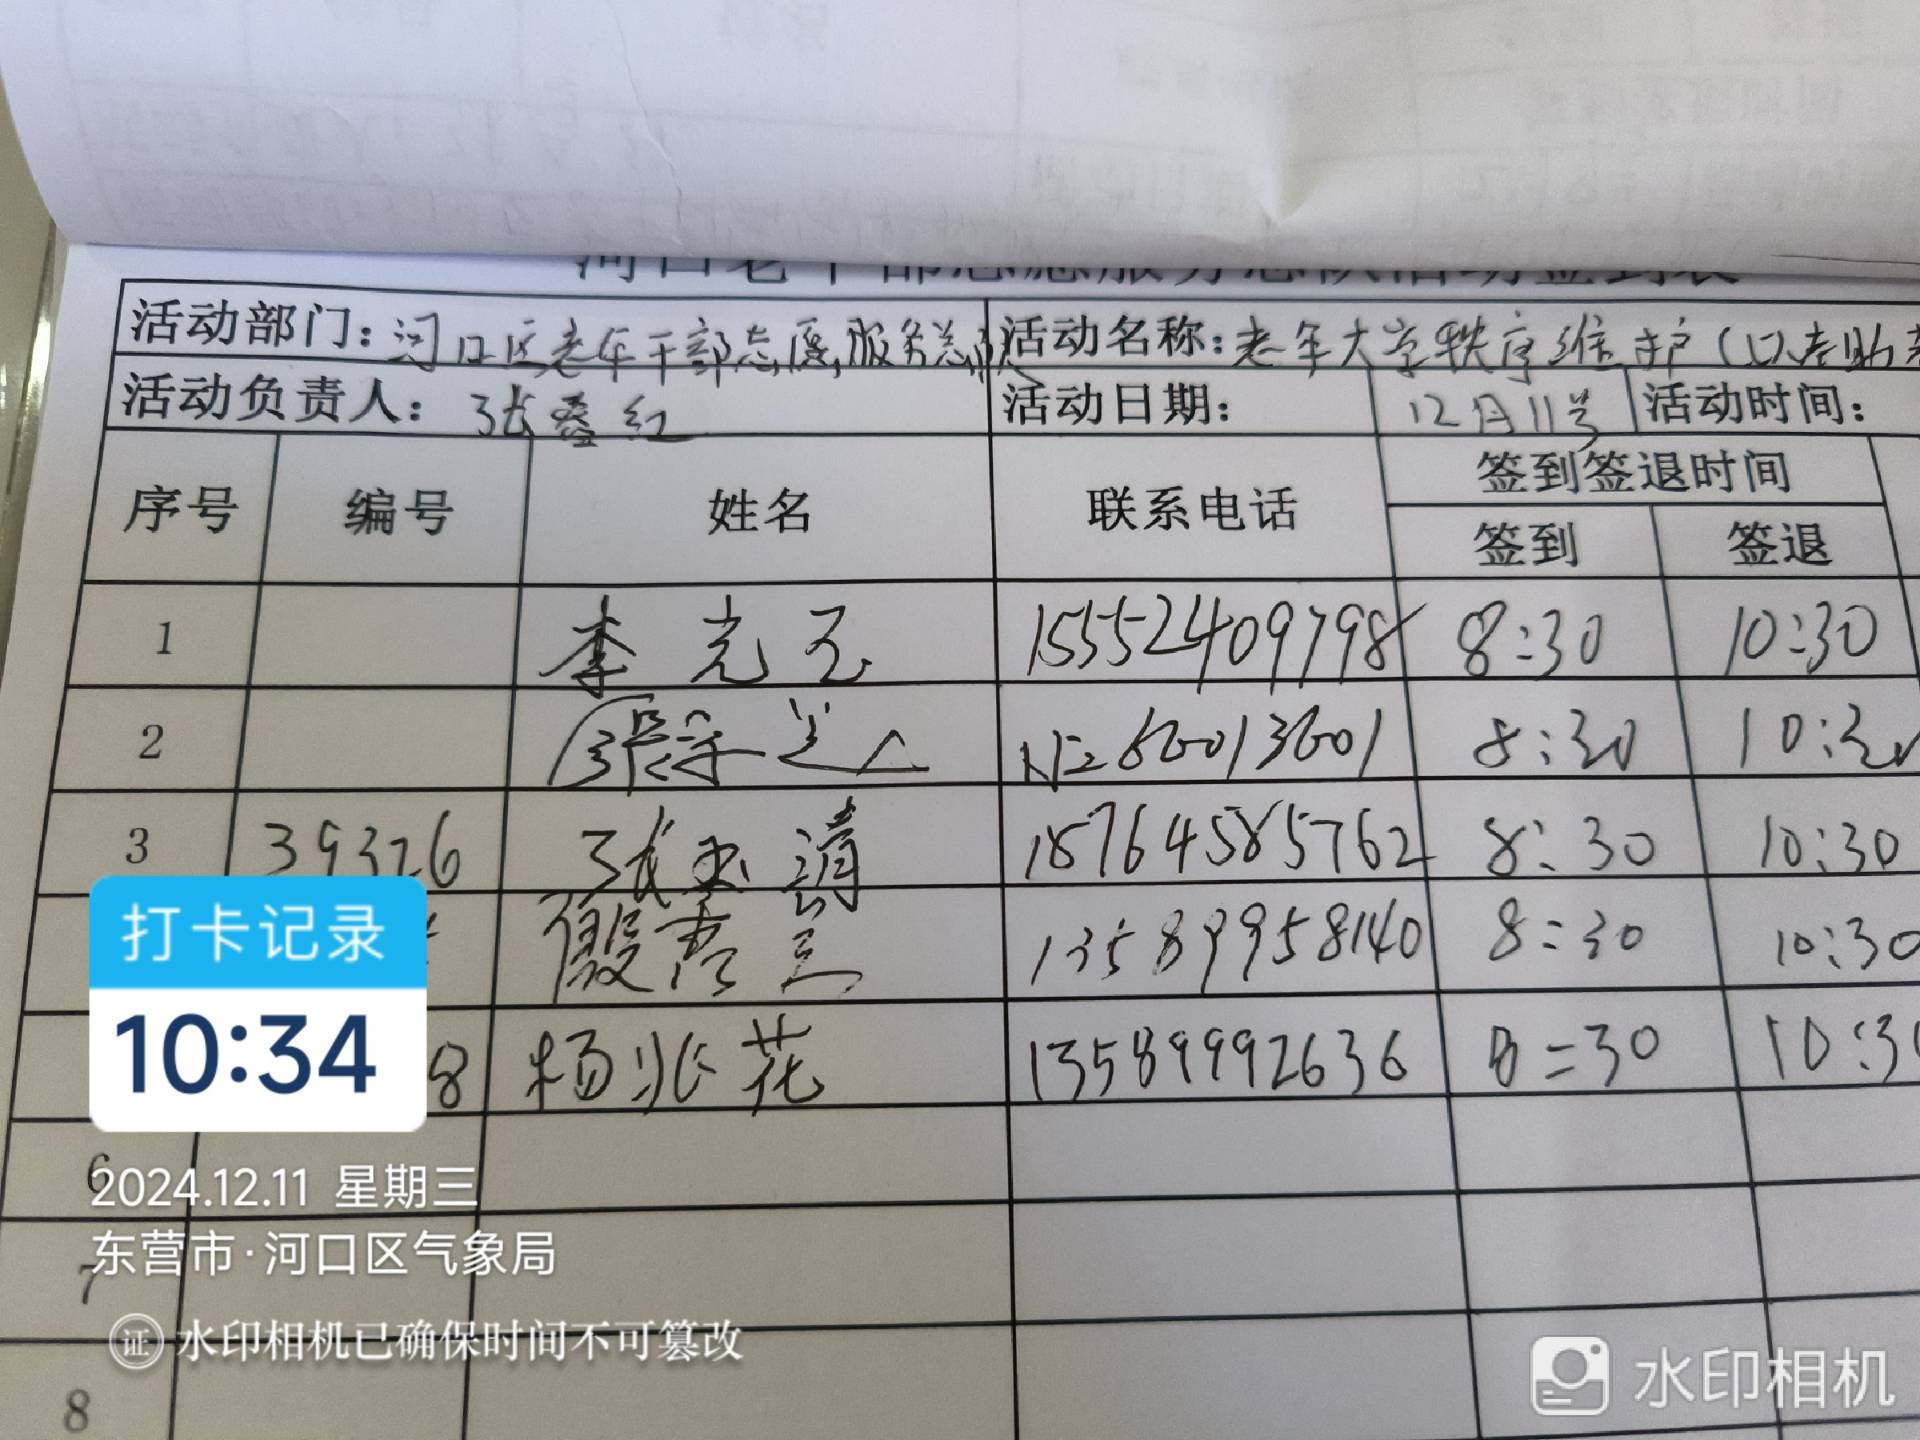 河口老干部志愿服务总队活动签到表
活动部门：河口区老年干部志愿服务总队 活动名称：老年大学秩序维护（以老助老
活动负责人：张叠红 活动日期： 12月11号 活动时间：
序号 编号 姓名 联系电话 签到签退时间
签到 签退
1 李光玉 15552409798 8:30 10:30
2 8:30 10:30
3 39326 张玉清 18764585762 8:30 10:30
13589958140 8:30 10:30
8 杨兆花 13589992636 8:30 10:30
6
7
8
打卡记录
10:34
2024.12.11 星期三
东营市·河口区气象局
证 水印相机已确保时间不可篡改
水印相机